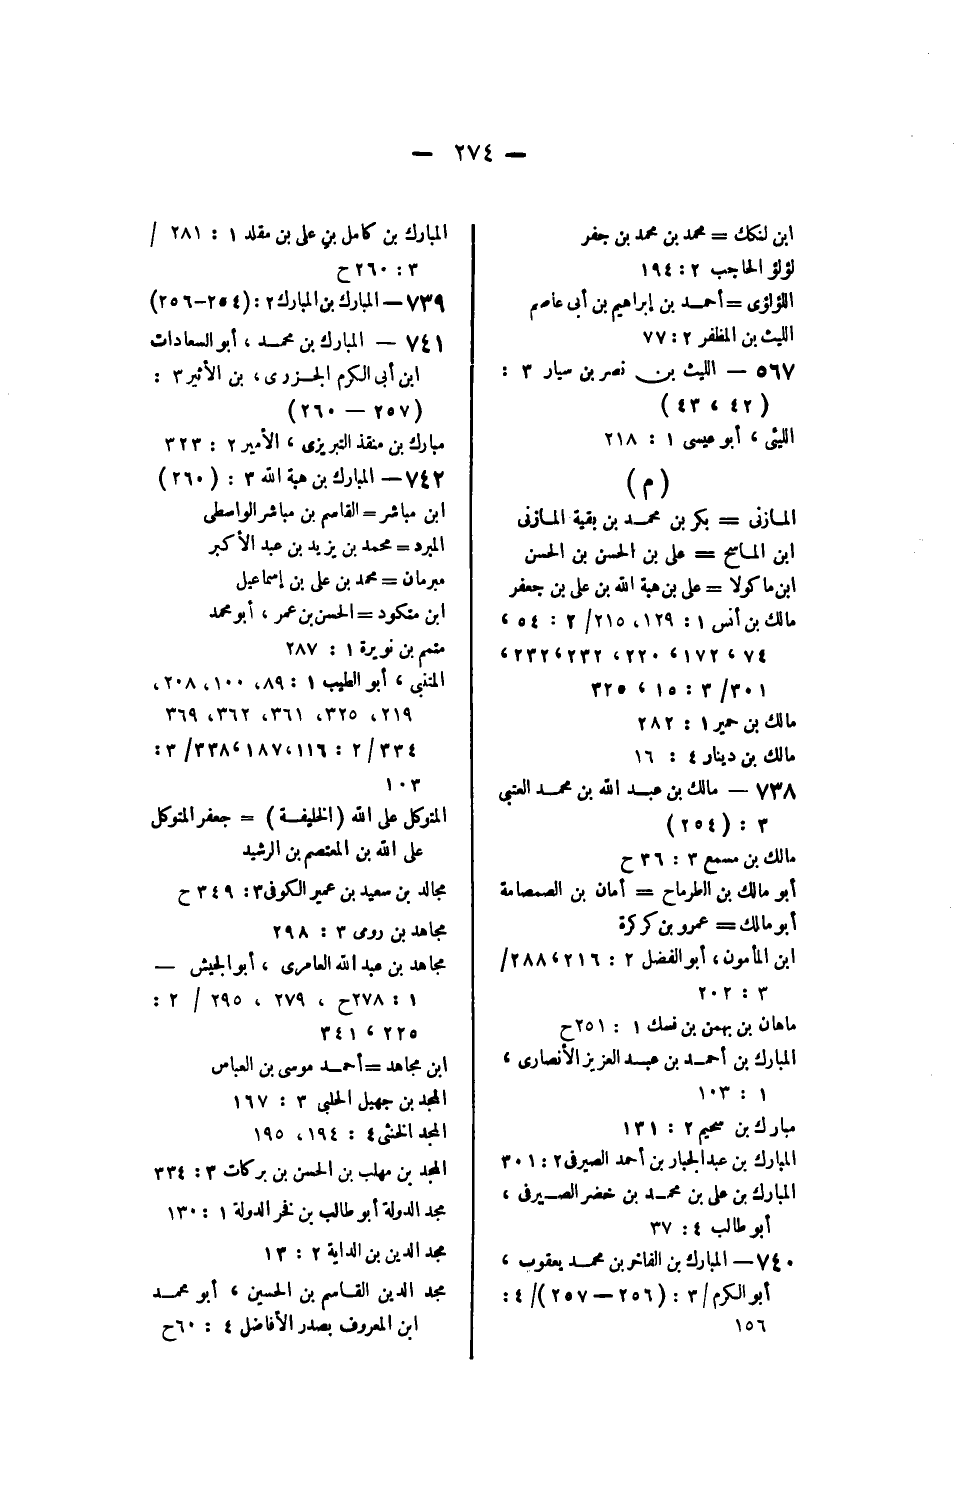 — ٢٧٤ —
ابن لنكك = محمد بن محمد بن جفر
لؤلؤ الحاجب ٢ : ١٩٤
اللؤلؤى = أحمـد بن إبراهيم بن أبى عاصم
الليث بن المظفر ٢ : ٧٧
٥٦٧ — الليث بن نصر بن سيار ٣ :
( ٤٢ ، ٤٣ )
الليثى ، أبو عيسى ١ : ٢١٨
( م )
المـازنى = بكر بن محمـد بن بقية المـازنى
ابن المـاسح = على بن الحسن بن الحسن
ابن ماكولا = على بن هبة الله بن على بن جعفر
مالك بن أنس ١ : ١٢٩، ٢١٥/ ٢ : ٥٤ ،
٧٤ ، ١٧٢، ٢٢٠، ٢٣٢، ٢٣٢،
٣٠١/ ٣ : ١٥ ، ٣٢٥
مالك بن حمير ١ : ٢٨٢
مالك بن دينار ٤ : ١٦
٧٣٨ — مالك بن عبـد الله بن محمـد العتبي
٣ : ( ٢٥٤ )
مالك بن مسمع ٣ : ٣٦ ح
أبو مالك بن الطرماح = أمان بن الصمصامة
أبو مالك = عمرو بن كركرة
ابن المأمون ، أبو الفضل ٢ : ٢١٦، ٢٨٨/
٣ : ٢٠٢
ماهان بن بهمن بن فسك ١ : ٢٥١ح
المبارك بن أحمـد بن عبـد العزيز الأنصارى ،
١ : ١٠٣
مبارك بن سحيم ٢ : ١٣١
المبارك بن عبد الجبار بن أحمد الصيرفى ٢ : ٣٠١
المبارك بن على بن محمـد بن خضر الصـيرفى ،
أبو طالب ٤ : ٣٧
٧٤٠ — المبارك بن الفاخر بن محمـد يعقوب ،
أبو الكرم / ٣ : ( ٢٥٦ — ٢٥٧ ) / ٤ :
١٥٦
المبارك بن كامل بن على بن مقلد ١ : ٢٨١ /
٣ : ٢٦٠ ح
٧٣٩ — المبارك بن المبارك ٢ : ( ٢٥٤–٢٥٦ )
٧٤١ — المبارك بن محمـد ، أبو السعادات
ابن أبى الكرم الجـزرى ، بن الأثير ٣ :
( ٢٥٧ — ٢٦٠ )
مبارك بن منقذ التبريزى ، الأمير ٢ : ٣٢٣
٧٤٢ — المبارك بن هبة الله ٣ : ( ٢٦٠ )
ابن مباشر = القاسم بن مباشر الواسطى
المبرد = محمد بن يزيد بن عبد الأكبر
مبرمان = محمد بن على بن إسماعيل
ابن متكود = الحسن بن عمر ، أبو محمد
متمم بن نويرة ١ : ٢٨٧
المتنبى ، أبو الطيب ١ : ٨٩، ١٠٠، ٢٠٨،
٢١٩، ٣٢٥، ٣٦١، ٣٦٢، ٣٦٩
٣٣٤ / ٢ : ١١٦، ١٨٧، ٣٣٨/ ٣ :
١٠٣
المتوكل على الله ( الخليفـة ) = جعفر المتوكل
على الله بن المعتصم بن الرشيد
مجالد بن سعيد بن عمير الكوفى ٣ : ٣٤٩ ح
مجاهد بن رومى ٣ : ٢٩٨
مجاهد بن عبد الله العامرى ، أبو الجيش —
١ : ٢٧٨ح ، ٢٧٩ ، ٢٩٥ / ٢ :
٢٢٥ ، ٣٤١
ابن مجاهد = أحمـد موسى بن العباس
المجد بن جهيل الحلبى ٣ : ١٦٧
المجد الخنثى ٤ : ١٩٤، ١٩٥
المجد بن مهلب بن الحسن بن بركات ٣ : ٣٣٤
مجد الدولة أبو طالب بن فخر الدولة ١ : ١٣٠
مجد الدين بن الداية ٢ : ١٣
مجد الدين القـاسم بن الحسين ، أبو محمـد
ابن المعروف بصدر الأفاضل ٤ : ٦٠ح